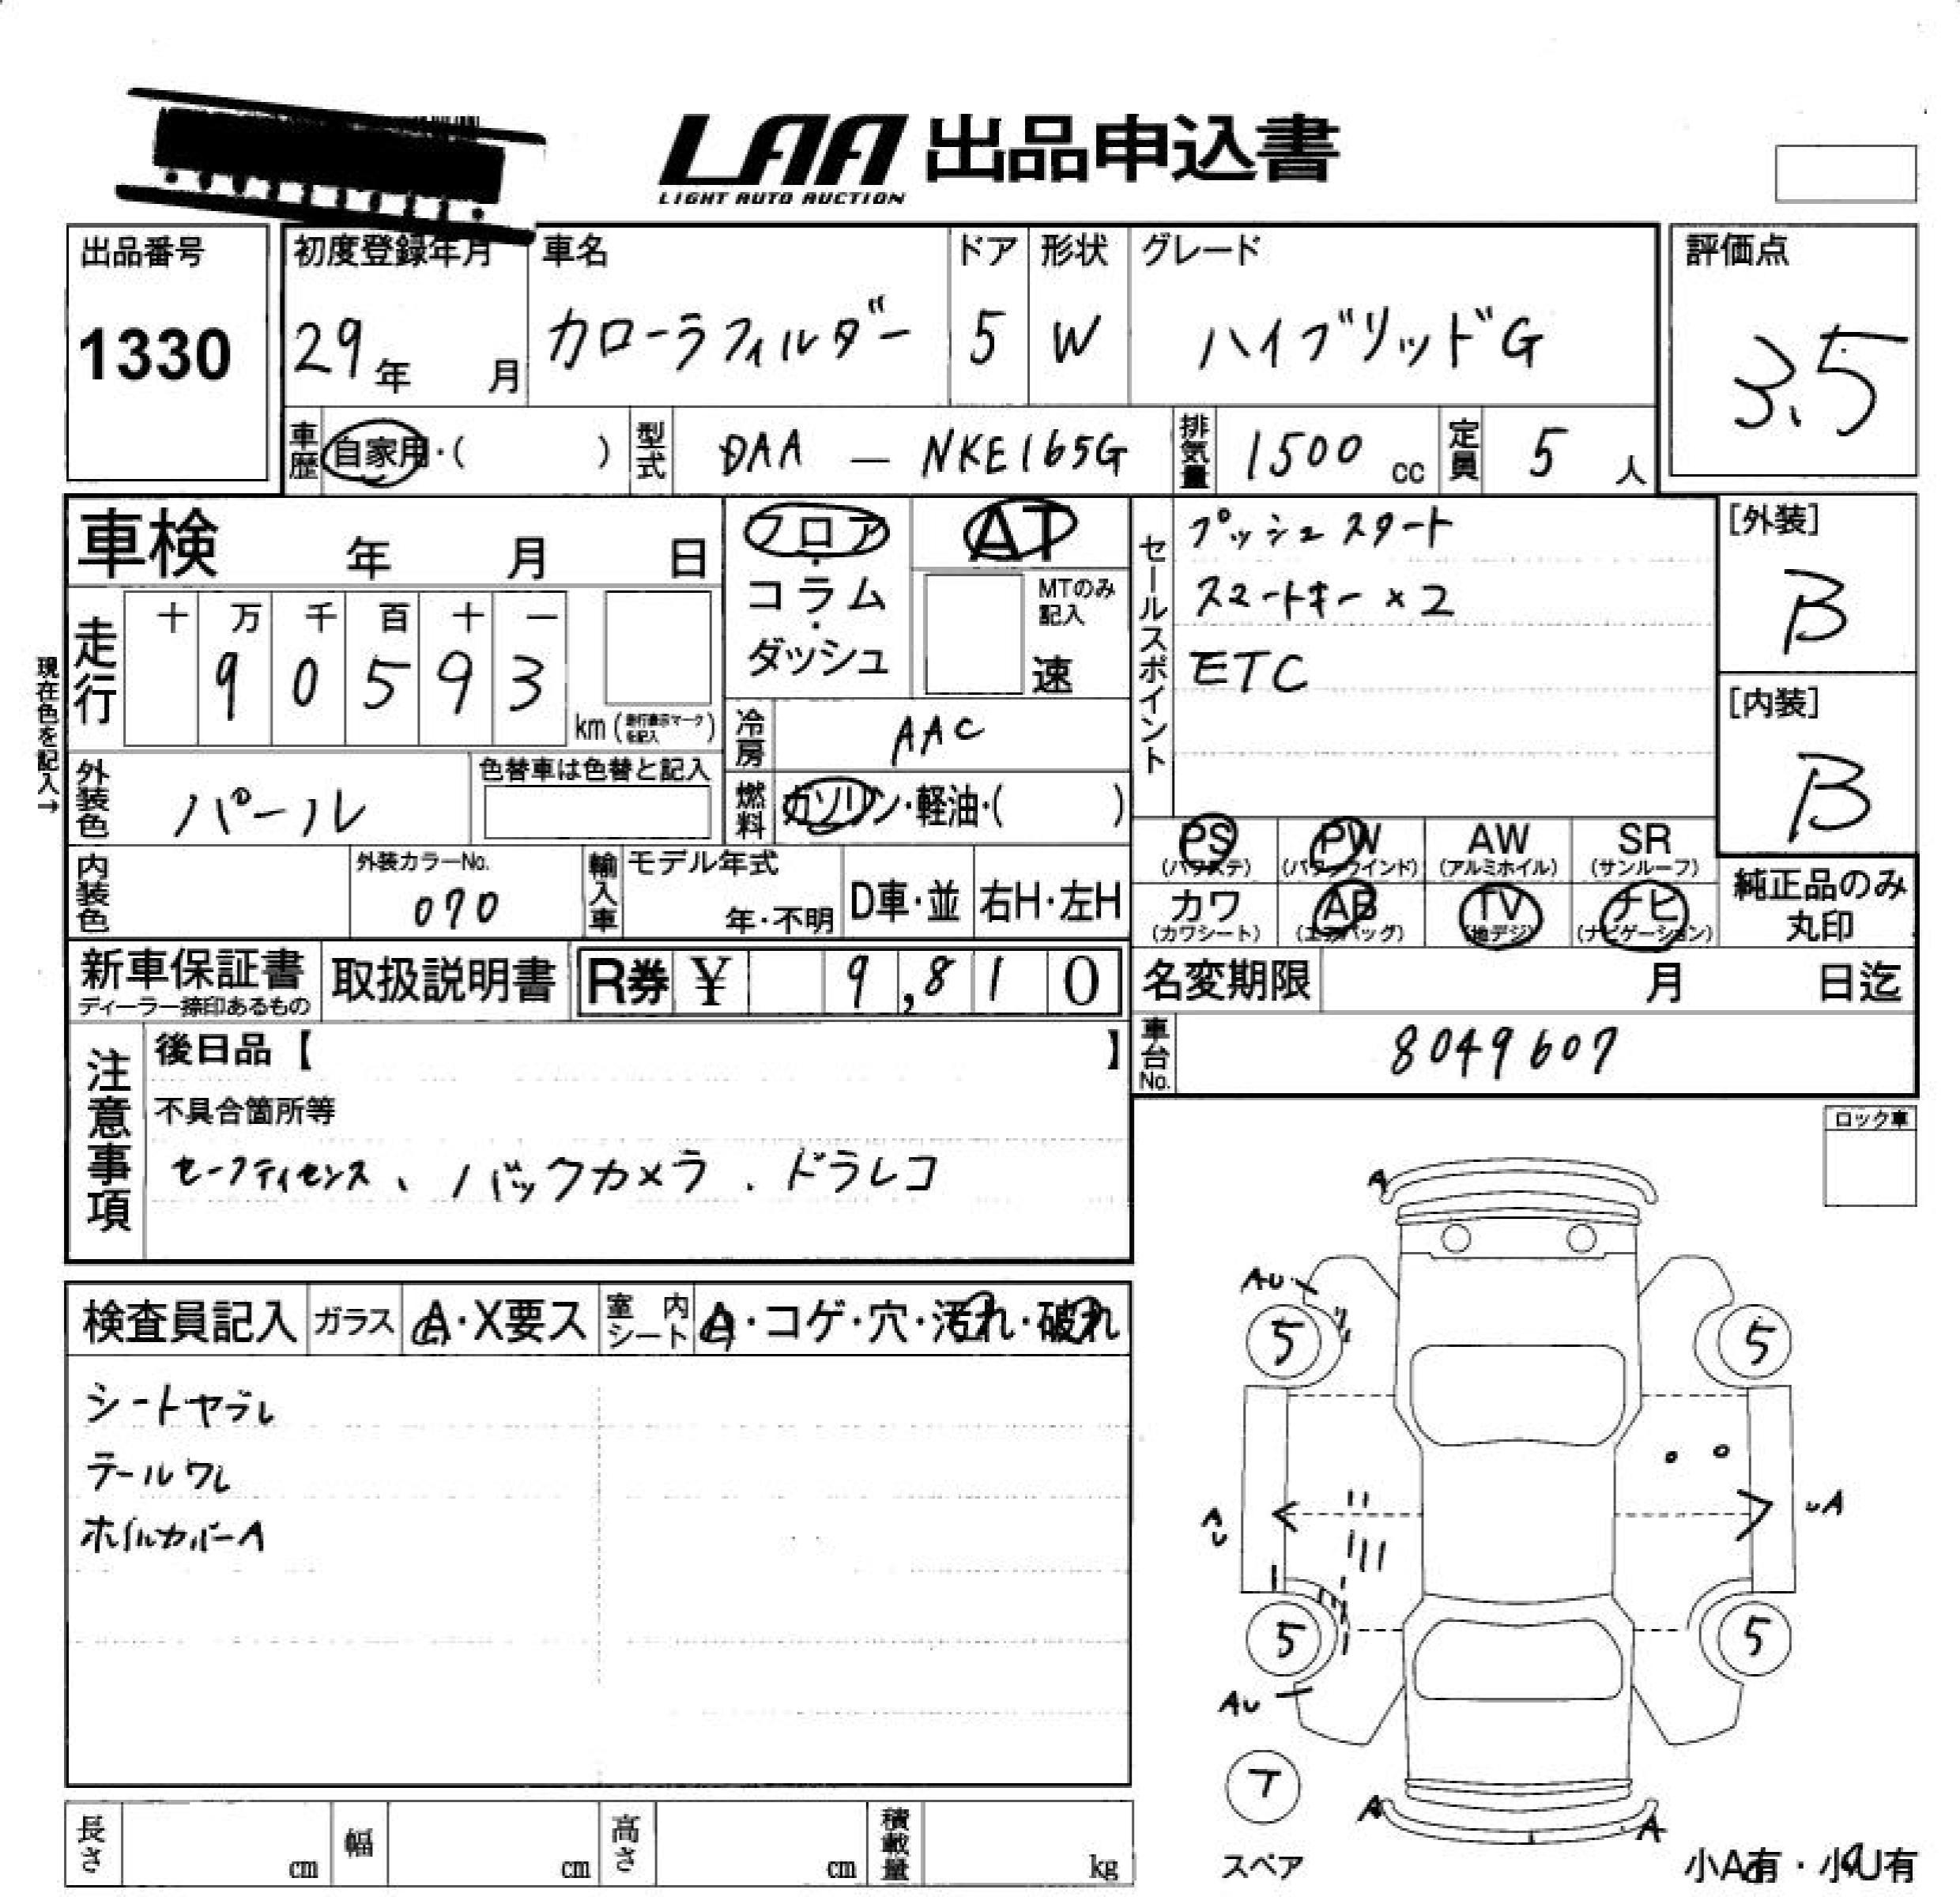 LAA 出品申込書
LIGHT AUTO AUCTION
出品番号
1330
初度登録年月
29年 月
車名
カローラフィルダー
ドア
5
形状
W
グレード
ハイブリッドG
評価点
3.5
車歴 自家用・( )
型式 DAA — NKE165G
排気量 1500 cc
定員 5 人
車検 年 月 日
現在色を記入→
走行
十 万 千 百 十 一
9 0 5 9 3
km(走行表示マークを記入)
フロア
・
コラム
・
ダッシュ
AT
MTのみ
記入
速
冷房 AAC
燃料 ガソリン・軽油・( )
外装色 パール
色替車は色替と記入
内装色
外装カラーNo.
070
輸入車
モデル年式
年・不明
D車・並
右H・左H
セールスポイント
プッシュスタート
スマートキー×2
ETC
[外装]
B
[内装]
B
PS
(パワステ)
PW
(パワーウインド)
AW
(アルミホイル)
SR
(サンルーフ)
カワ
(カワシート)
AB
(エアバッグ)
TV
(地デジ)
ナビ
(ナビゲーション)
純正品のみ
丸印
新車保証書
ディーラー捺印あるもの
取扱説明書
R券 ¥ 9,810
名変期限 月 日迄
車台No. 8049607
注意事項
後日品【 】
不具合箇所等
セーフティセンス、バックカメラ.ドラレコ
ロック車
検査員記入
ガラス A・X要ス
室内シート A・コゲ・穴・汚れ・破れ
シートヤブレ
テールワレ
ホイルカバーA
A
AU
5
5
AU
UA
5
5
AU
T
スペア
A
A
小A有・小U有
長さ cm
幅 cm
高さ cm
積載量 kg